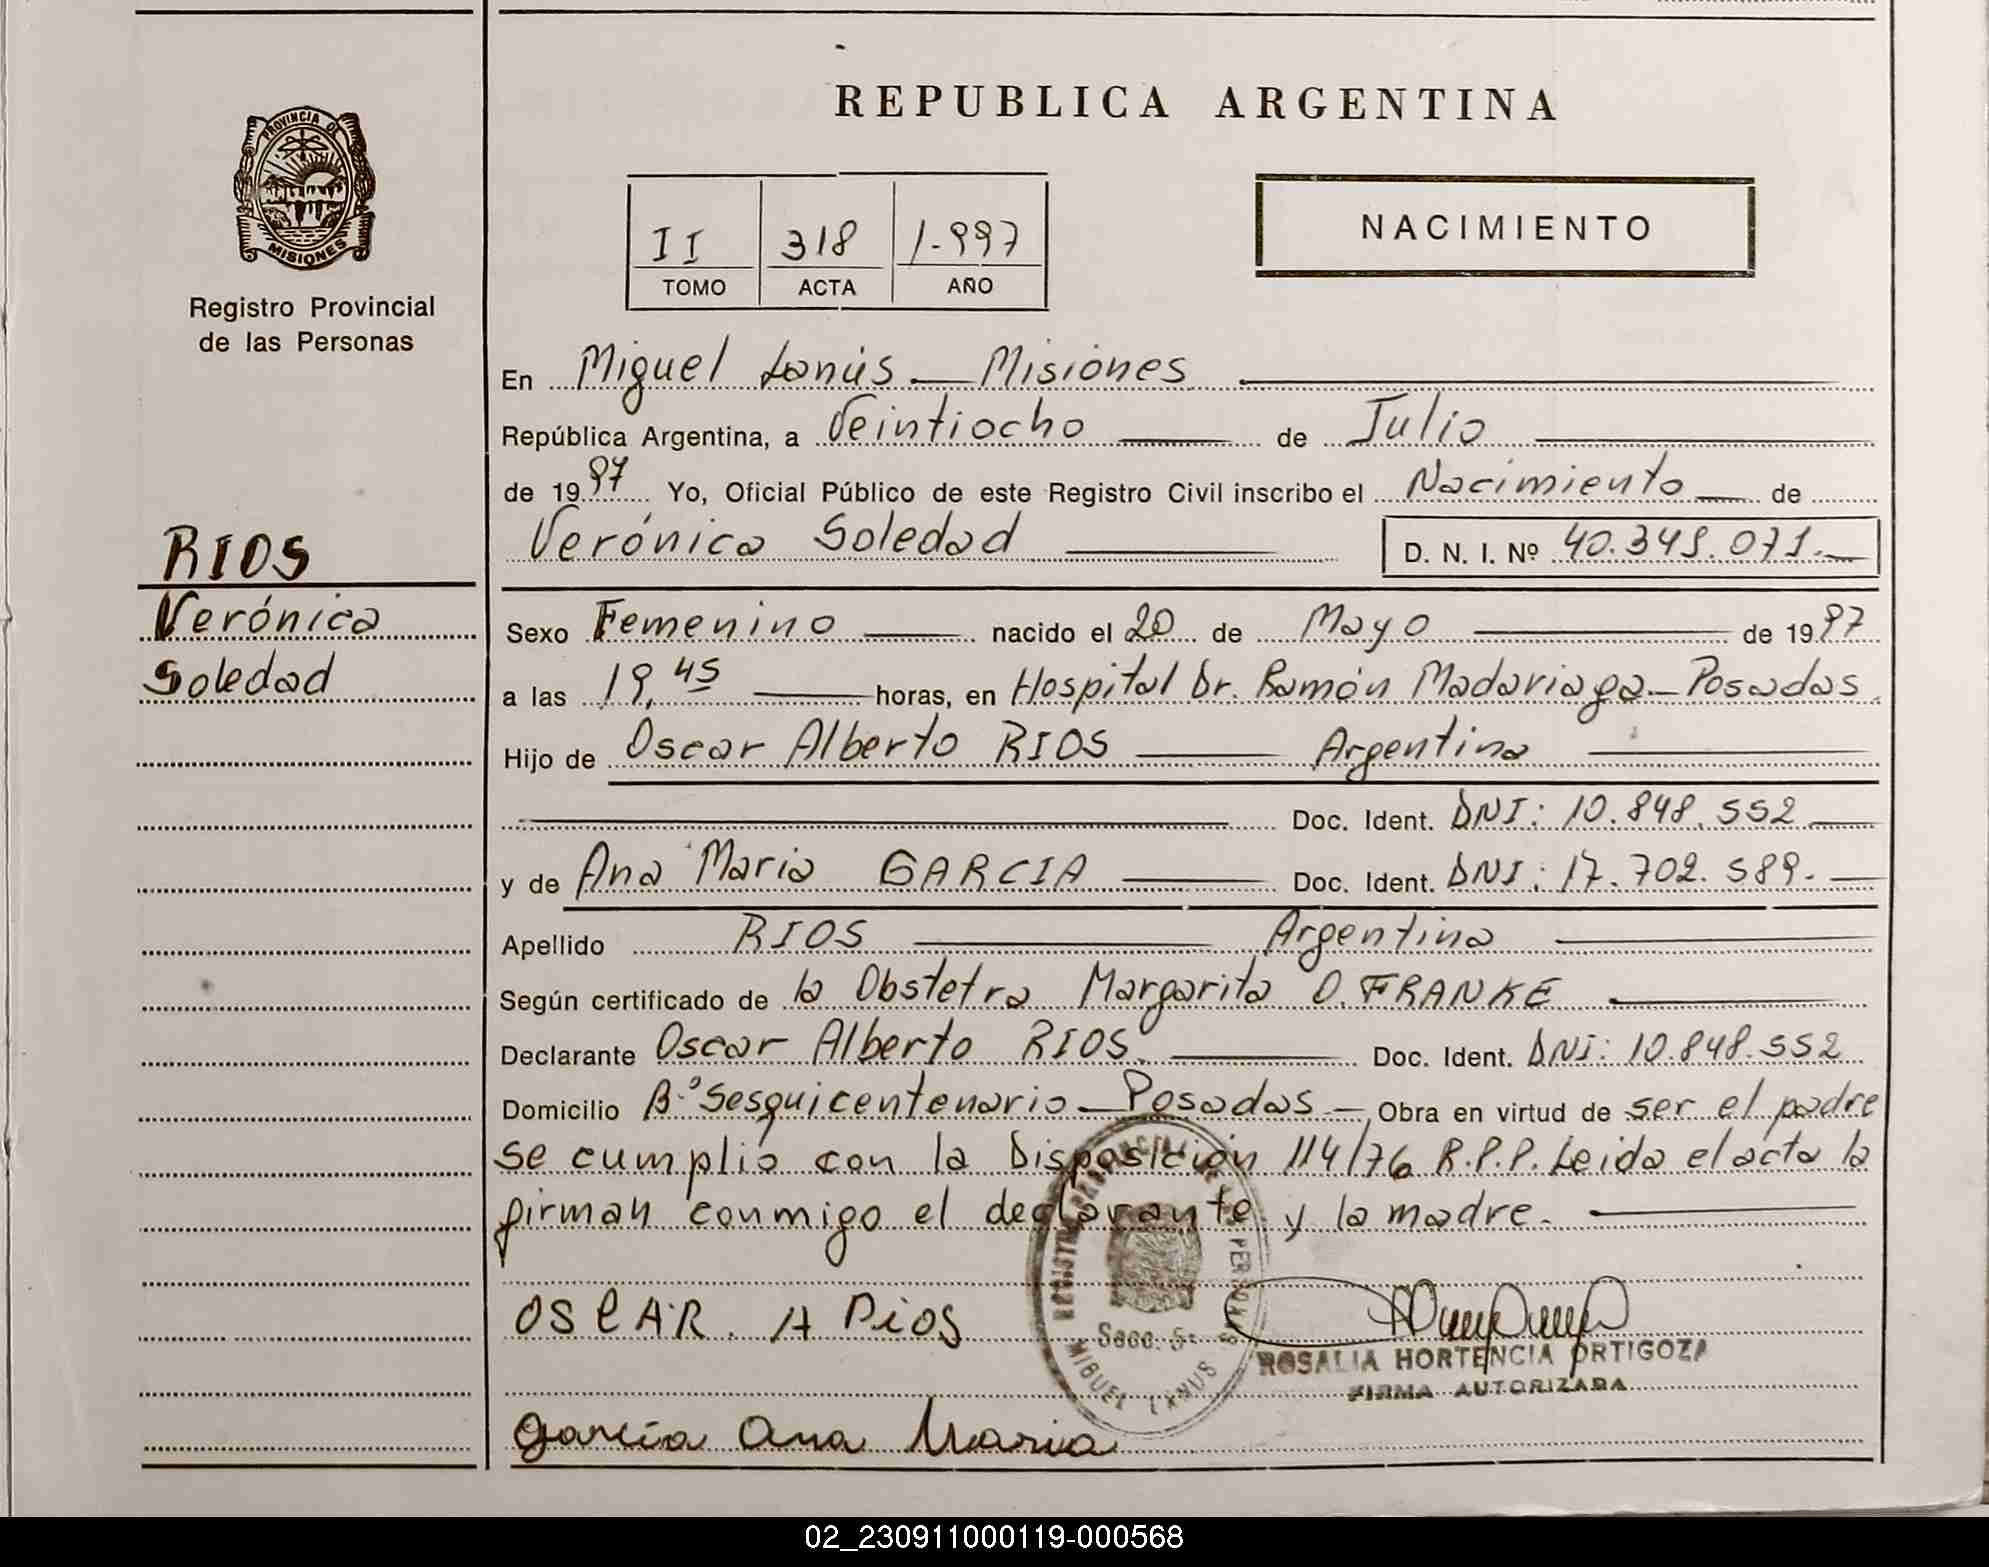 REPUBLICA ARGENTINA
PROVINCIA DE
MISIONES
Registro Provincial
de las Personas
II 318 1-997
TOMO ACTA AÑO
NACIMIENTO
En Miguel Lanús - Misiones
República Argentina, a Veintiocho de Julio
de 1997 Yo, Oficial Público de este Registro Civil inscribo el Nacimiento de
Verónica Soledad D. N. I. Nº 40.343.071.-
RIOS
Verónica
Soledad
Sexo Femenino nacido el 20 de Mayo de 1997
a las 19,45 horas, en Hospital Dr. Ramón Madariaga - Posadas
Hijo de Oscar Alberto RIOS Argentina
Doc. Ident. DNI: 10.848.552
y de Ana Maria GARCIA Doc. Ident. DNI: 17.702.589.-
Apellido RIOS Argentina
Según certificado de la Obstetra Margarita O. FRANKE
Declarante Oscar Alberto RIOS. Doc. Ident. DNI: 10.848.552
Domicilio B.º Sesquicentenario - Posadas - Obra en virtud de ser el padre
se cumplió con la Disposición 114/76 R.P.P. Leida el acta la
firman conmigo el declarante y la madre.
OSCAR. A Rios
Secc. 5a
MIGUEL LANUS
ROSALIA HORTENCIA ORTIGOZA
FIRMA AUTORIZADA
García Ana Maria
02_230911000119-000568